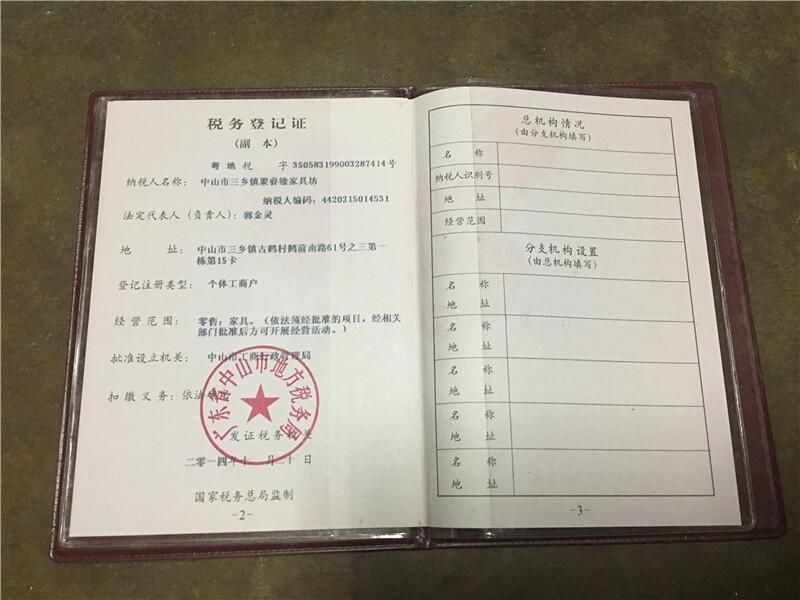 税务登记证
(副 本)
粤 地 税 字 350583199003287414 号
纳税人名称: 中山市三乡镇聚睿缘家具坊
纳税人编码: 4420215014531
法定代表人 (负责人): 郭金灵
地 址: 中山市三乡镇古鹤村鹤前南路61号之三第一
栋第15卡
登记注册类型: 个体工商户
经 营 范 围: 零售: 家具。(依法须经批准的项目, 经相关
部门批准后方可开展经营活动。)
批准设立机关: 中山市工商行政管理局
扣 缴 义 务: 依法确定
广东省中山市地方税务局
发证税务机关
二零一四年十 月二十日
国家税务总局监制
-2-
总机构情况
(由分支机构填写)
名 称
纳税人识别号
地 址
经营范围
分支机构设置
(由总机构填写)
名 称
地 址
名 称
地 址
名 称
地 址
名 称
地 址
名 称
地 址
-3-